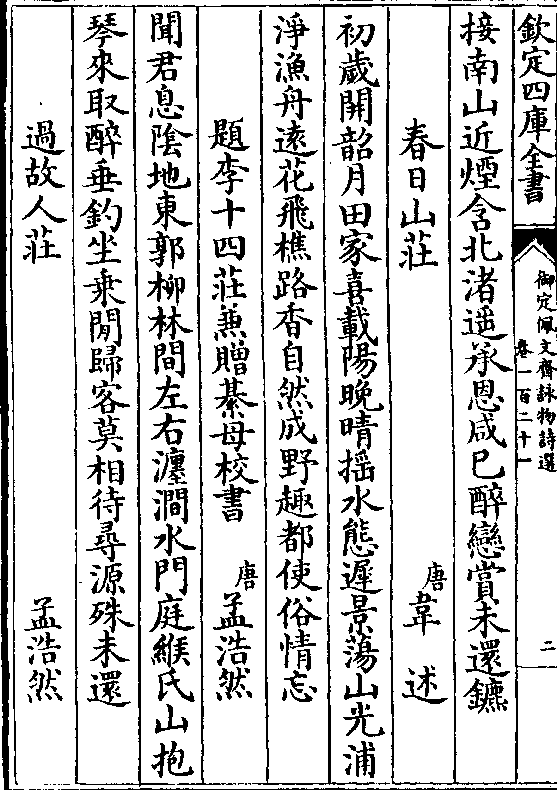 欽定四庫全書
御定佩文齋詠物詩選
卷一百二十一
二
接南山近煙含北渚遥承恩咸已醉戀賞未還鑣
春日山莊
唐韋述
初歲開韶月田家喜載陽晚晴揺水態遲景蕩山光浦
淨漁舟逺花飛樵路香自然成野趣都使俗情忘
題李十四莊兼贈綦母校書
唐孟浩然
聞君息陰地東郭柳林間左右瀍澗水門庭緱氏山抱
琴來取醉垂釣坐乗閒歸客莫相待尋源殊未還
過故人莊
孟浩然